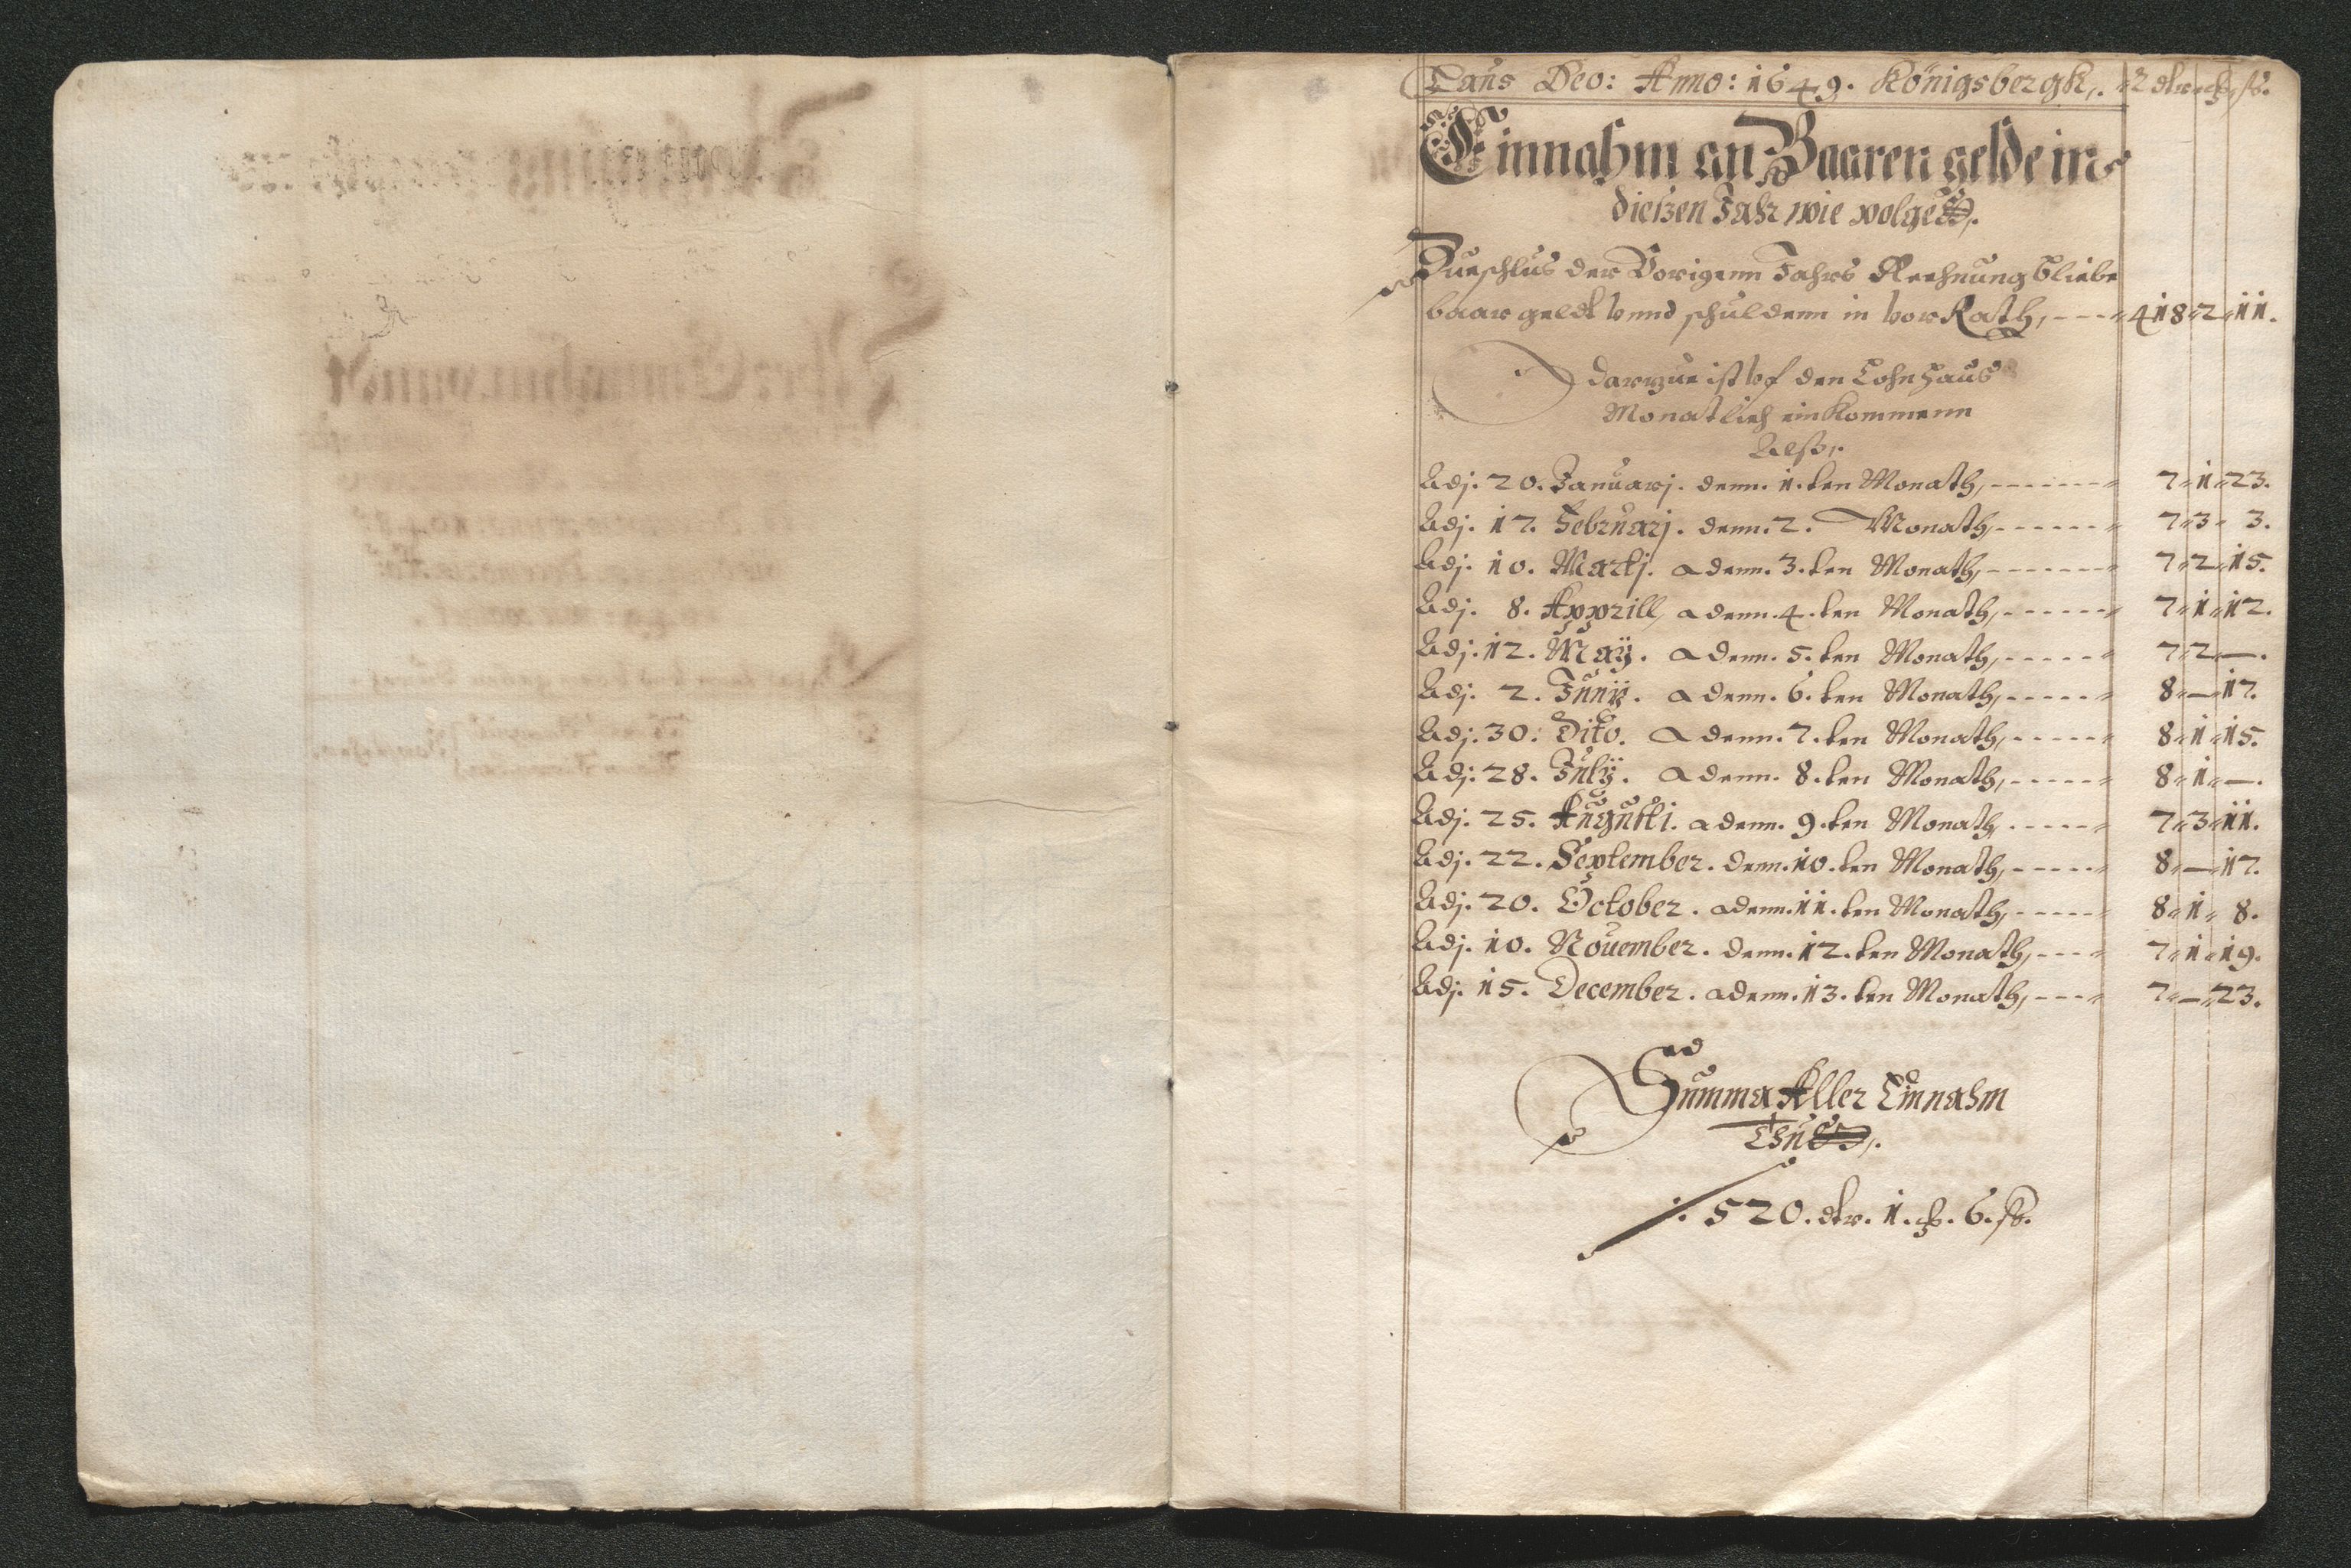 Laus Deo: Anno: 1649. Königsbergk,.
Einnahm an Baaren gelde in
dießen Jahr wie volget,.
Zue schlus der Vorigenn Jahrs Rechnung bliebe
baar geldt vnnd schuldenn in vor Rath, - - - 418 " 2 " 11.
darzue ist vf den Lohn haus
Monatlich ein kommenn
Alß,.
Adj. 20. Januarj. denn. 1. ten Monath, - - - - - - - 7 " 1 " 23.
Adj. 17. Februarj. denn. 2. Monath, - - - - - - 7 " 3 " 3.
Adj. 10. Martj. denn. 3. ten Monath, - - - - - - - 7 " 2 " 15.
Adj. 8. Apprill denn. 4. ten Monath, - - - - - - 7 " 1 " 12.
Adj. 12. May. denn. 5. ten Monath, - - - - - 7 " 2 " —.
Adj. 2. Junÿ. denn. 6. ten Monath, - - - - - 8 " — " 17.
Adj. 30. Dito. denn. 7. ten Monath, - - - - - 8 " 1 " 15.
Adj. 28. Julÿ. denn. 8. ten Monath, - - - - - 8 " 1 " —.
Adj. 25. Augusti. denn. 9. ten Monath, - - - - - 7 " 3 " 11.
Adj. 22. September. denn. 10. ten Monath, - - - - - 8 " — " 17.
Adj. 20. October. denn. 11. ten Monath, - - - - - 8 " 1 " 8.
Adj. 10. Nouember. denn. 12. ten Monath, - - - - 7 " 1 " 19.
Adj. 15. December. denn. 13. ten Monath, - - - - 7 " — " 23.
Summa Aller Einnahm
Thutt,.
520. dlr. 1. 6.